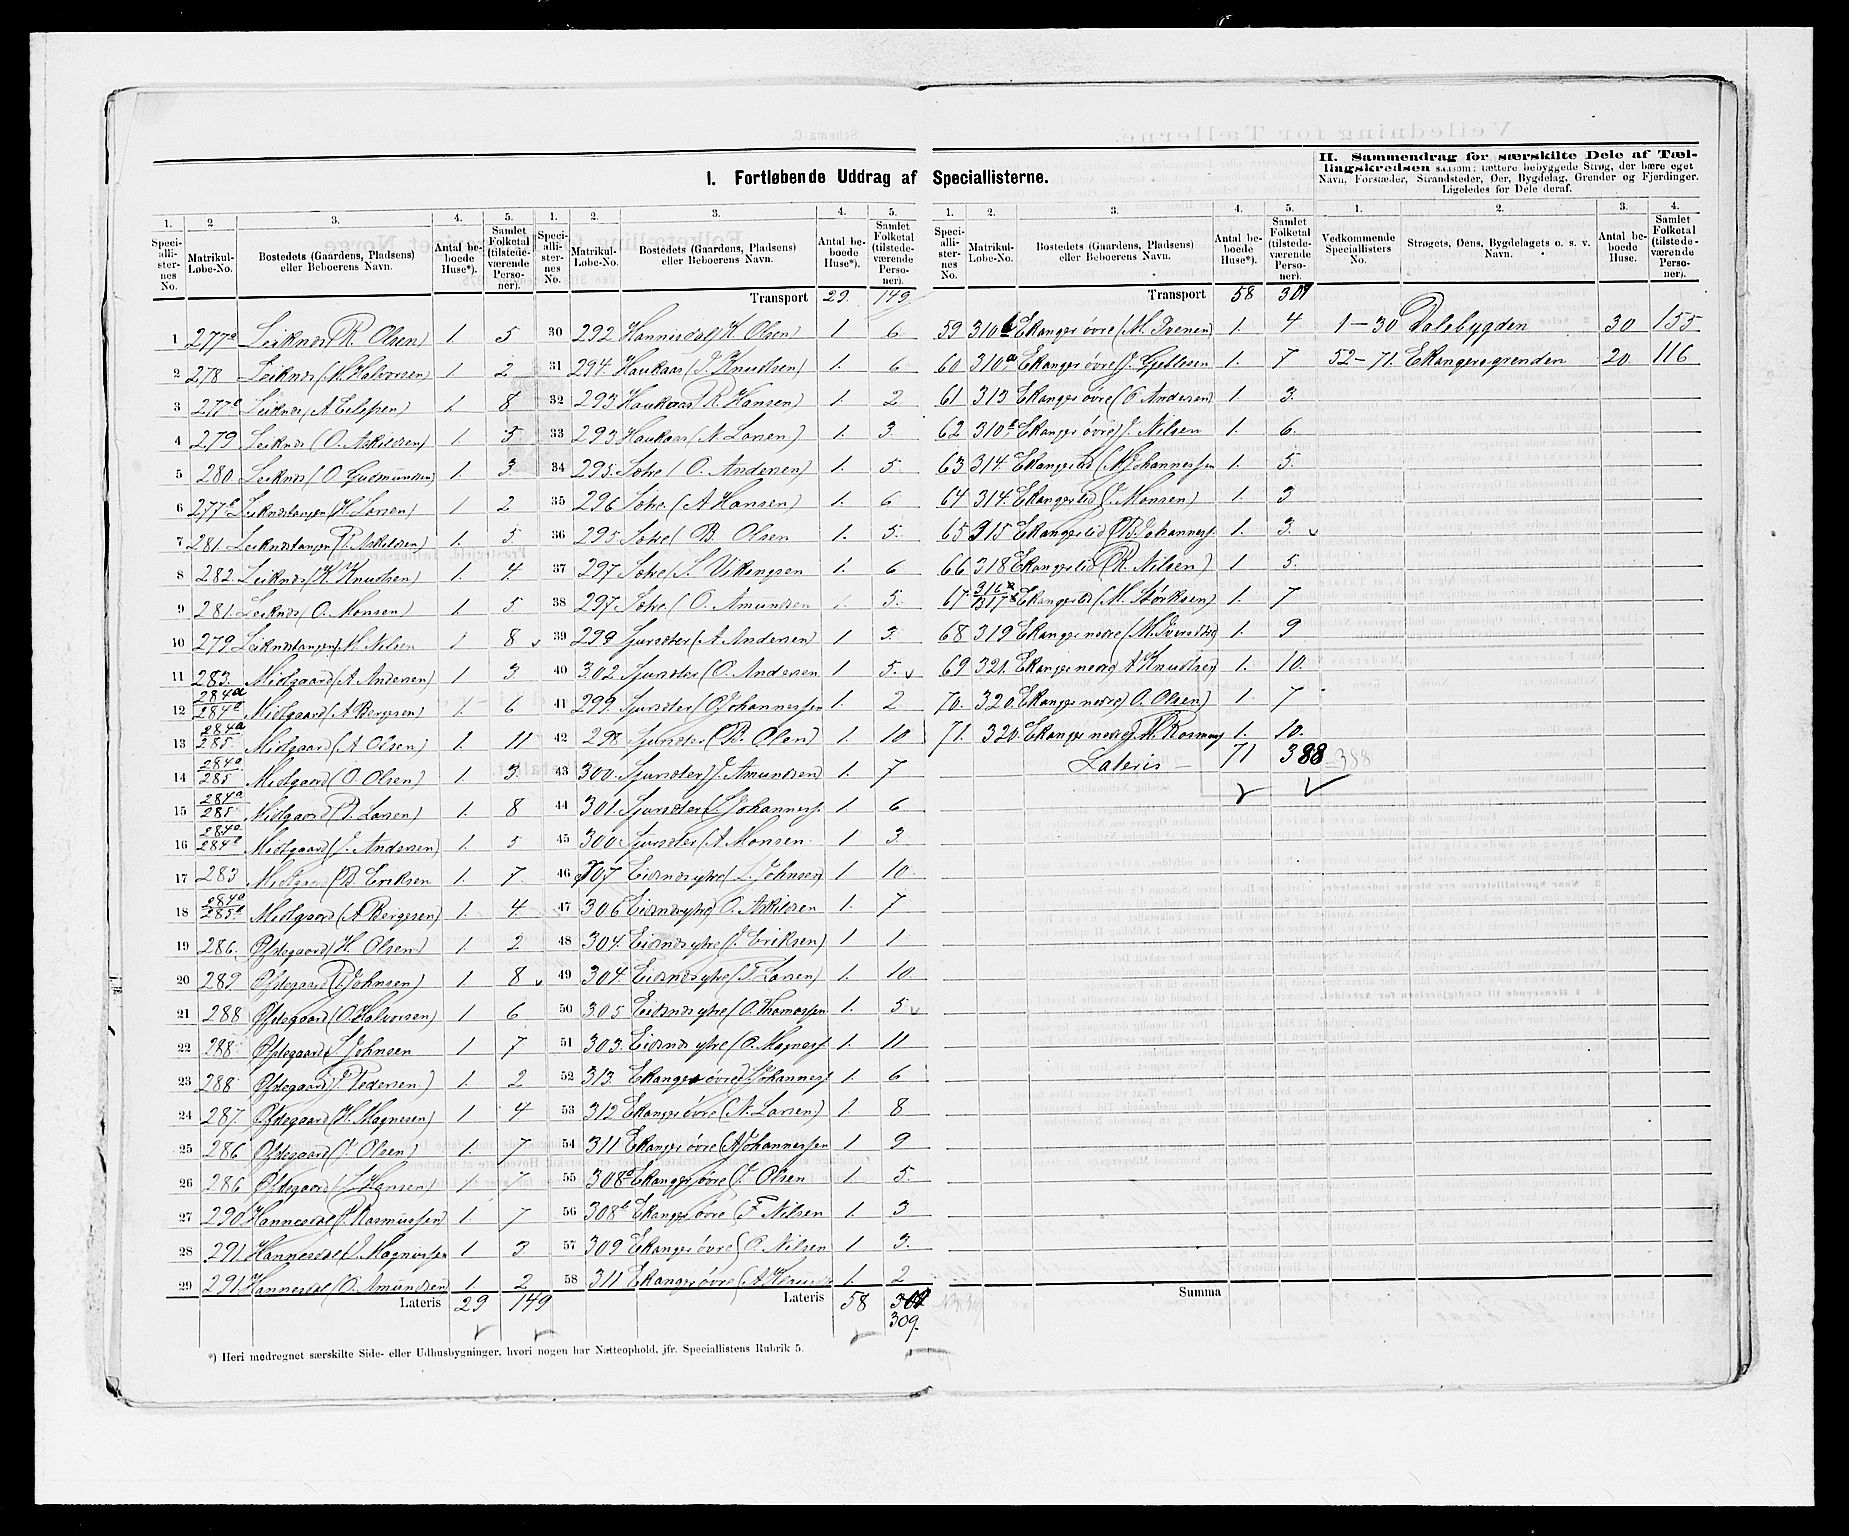 I. Fortløbende Uddrag af Speciallisterne.
II. Sammendrag for særskilte Dele af Tællingskredsen saasom: tættere bebyggede Strøg, der bære eget Navn, Forstæder, Strandsteder, Øer, Bygdelag, Grender og Fjerdinger. Ligeledes for Dele deraf.
1. 2 3. 4. 5.
Speciallisternes No. Matrikul-Løbe-No. Bostedets (Gaardens, Pladsens) eller Beboerens Navn. Antal beboede Huse*). Samlet Folketal (tilstedeværende Personer).
1 277a Leiknes (R. Olsen) 1 5
2 278 Leiknes (M. Halvorsen) 1 2
3 277 Leiknes (A Eilifsen) 1. 8
4 279 Leiknes (O. Askildsen) 1. 5
5 280. Leiknes (O. Gudmundsen) 1. 3
6 277 Leiknestangen (H. Larsen) 1 2
7 281. Leiknestangen (P. Askildsen) 1. 5
8 282. Leiknes (K. Knudsen) 1. 4
9 281. Leiknes (O. Monsen) 1. 5
10 279. Leiknestangen (M. Nilsen 1 8
11 283. Midtgaard (A Andersen) 1 3
12 284a 284 Midtgaard (A Bergesen) 1. 6
13 284a 285. Midtgaard (A Olsen) 1. 11
14 284a 285 Midtgaard (O. Olsen) 1. 3.
15 284a 285 Midtgaard (P. Larsen) 1. 8
16 284a 284 Midtgaard (J. Andersen) 1. 5
17 283 Midtgaard (B. Eriksen 1. 7.
18 284a 285 Midtgaard (A Bergesen) 1. 4.
19 286. Østegaard (H. Olsen) 1. 2
20 289 Østegaard (J. Johnsen) 1 8
21 288 Østegaard (O Halvorsen) 1 6
22 288 Østegaard (S Johnsen 1 7
23 288 Østegaard (P. Pedersen) 1. 2
24 287. Østegaard (H. Magnesen) 1 4
25 286 Østegaard (J Olsen) 1. 7
26 286 Østegaard (L Hansen) 1. 7
27 290. Hannesdal (J. Rasmussen) 1. 7
28 291. Hannesdal (J. Magnussen 1 3
29 291. Hannesdal (O. Amundsen) 1. 2
Lateris 29 149
1. 2. 3. 4. 5.
Speciallisternes No. Matrikul-Løbe-No. Bostedets (Gaardens, Pladsens) eller Beboerens Navn. Antal beboede Huse*). Samlet Folketal (tilstedeværende Personer).
Transport 29. 149
30 292 Hannisdal (K Olsen) 1 6
31 294. Haukaas (J. Knudsen) 1. 6
32 293 Haukaas (R. Hansen) 1. 2
33 293 Haukaas (N. Larsen) 1. 3.
34 295. Solve (O. Andersen) 1. 5
35 296 Solve (A Hansen) 1. 6
36 295. Solve (B. Olsen 1. 5.
37 297 Solve (S. Vikingsen 1. 6
38 297. Solve (O. Amundsen 1. 5.
39 299 Sjursæter (A Andersen) 1 3.
40 302 Sjursæter (O. Andersen 1 5.
41 299. Sjursæter (O Johannessen 1. 2
42 298 Sjursæter (B. Olsen) 1. 10
43 300. Sjursæter (J. Amundsen) 1. 7
44 301. Sjursæter (J Johanness. 1. 6
45 300. Sjursæter (A Monsen 1 3.
46 307 Eidsnes ytre (L. Johnsen) 1. 10
47 306 Eidsnes ytre (O. Askildsen 1. 7
48 304. Eidsnes ytre (J. Eriksen) 1 1
49 304. Eidsnes ytre (T Larsen) 1. 10.
50 305 Eidsnes ytre (O. Thomassen 1. 5
51 303. Eidsnes ytre (O. Magness 1. 11
52 313. Ekanger øvre (J Johanness. 1. 6
53 312 Ekanger øvre (N. Larsen) 1. 8
54 311 Ekanger øvre (A Johannessen 1 9
55 308a Ekanger øvre (J. Olsen 1. 5.
56 308b Ekanger øvre (F Nilsen 1. 3
57 309 Ekanger øvre (O. Nilsen 1 3.
58 311 Ekanger øvre (A 1. 2
Lateris 58
309.
1. 2. 3. 4. 5.
Speciallisternes No. Matrikul-Løbe-No. Bostedets (Gaardens, Pladsens) eller Beboerens Navn. Antal beboede Huse*). Samlet Folketal (tilstedeværende Personer).
Transport 58 309
59 310 Ekanger øvre (M. Ivenen) 1. 4
60 310a Ekanger øvre (J. Gjetlesen 1. 7
61 313 Ekanger øvre (O Andersen) 1 3.
62 310 Ekanger øvre (J. Nilsen 1. 6.
63 314. Ekangerlid (M Johannessen 1. 5.
64 314. Ekangerlid (J. Monsen) 1. 3
65 315 Ekangerlid (B. Johanness. 1. 3.
66 318 Ekangerlid (R. Nilsen) 1 5.
67 316 317 Ekangerlid (M. Størksen) 1. 7
68 319 Ekanger nedre (M. Iversdtr) 1. 9
69 321. Ekanger nedre (A Knudsen 1. 10.
70. 320. Ekanger nedre (O. Olsen) 1. 7
71. 320. Ekanger nedre (M. Rasmuss 1. 10.
Lateris — 71 388 388
Summa
1. 2. 3. 4.
Vedkommende Speciallisters No. Strøgets, Øens, Bygdelagets o. s. v. Navn. Antal beboede Huse. Samlet Folketal (tilstedeværende Personer).
1 — 30 Dalebygden 30 155
52 — 71. Ekangersgrenden 20 116
*) Heri medregnet særskilte Side- eller Udhusbygninger, hvori nogen har Natteophold, jfr. Speciallistens Rubrik 5.